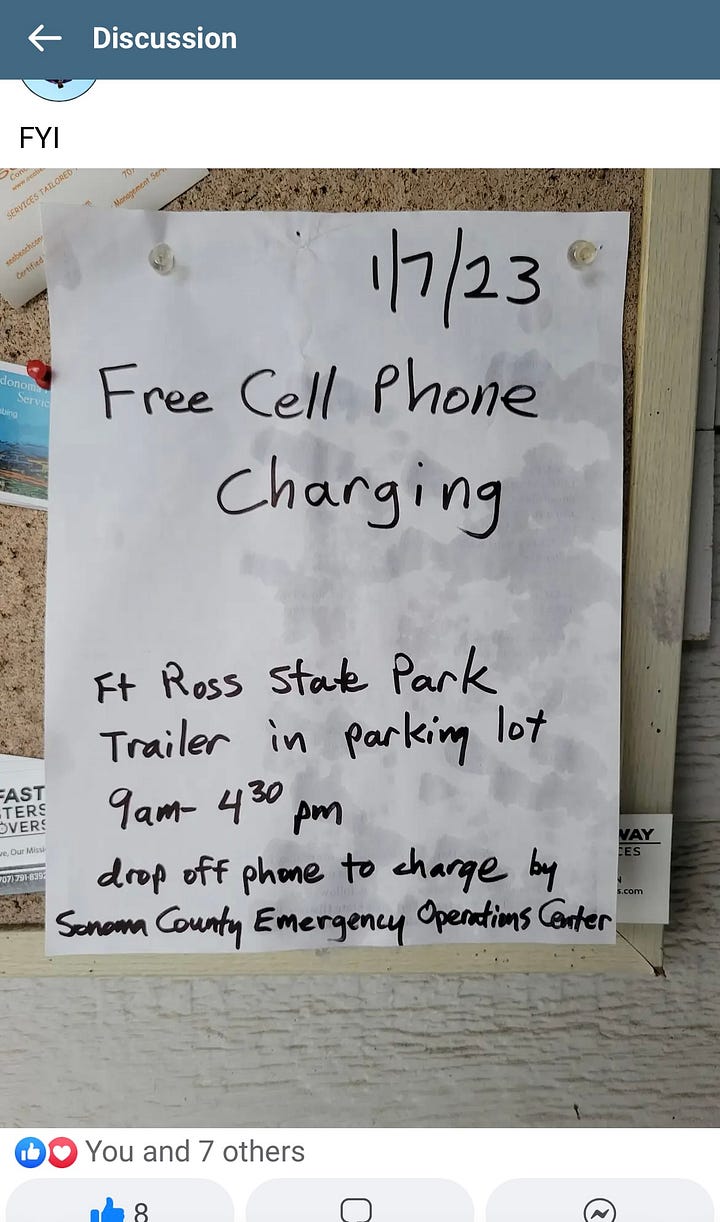 Discussion
FYI
SERVICES TAILORED
Management
Certified
1/7/23
Free Cell Phone
Charging
Servic
Ft Ross State Park
Trailer in parking lot
9am- 4 30 pm
drop off phone to charge by
Sonoma County Emergency Operations Center
FAST
TERS
OVERS
707) 791-839
WAY
CES
s.com
You and 7 others
8